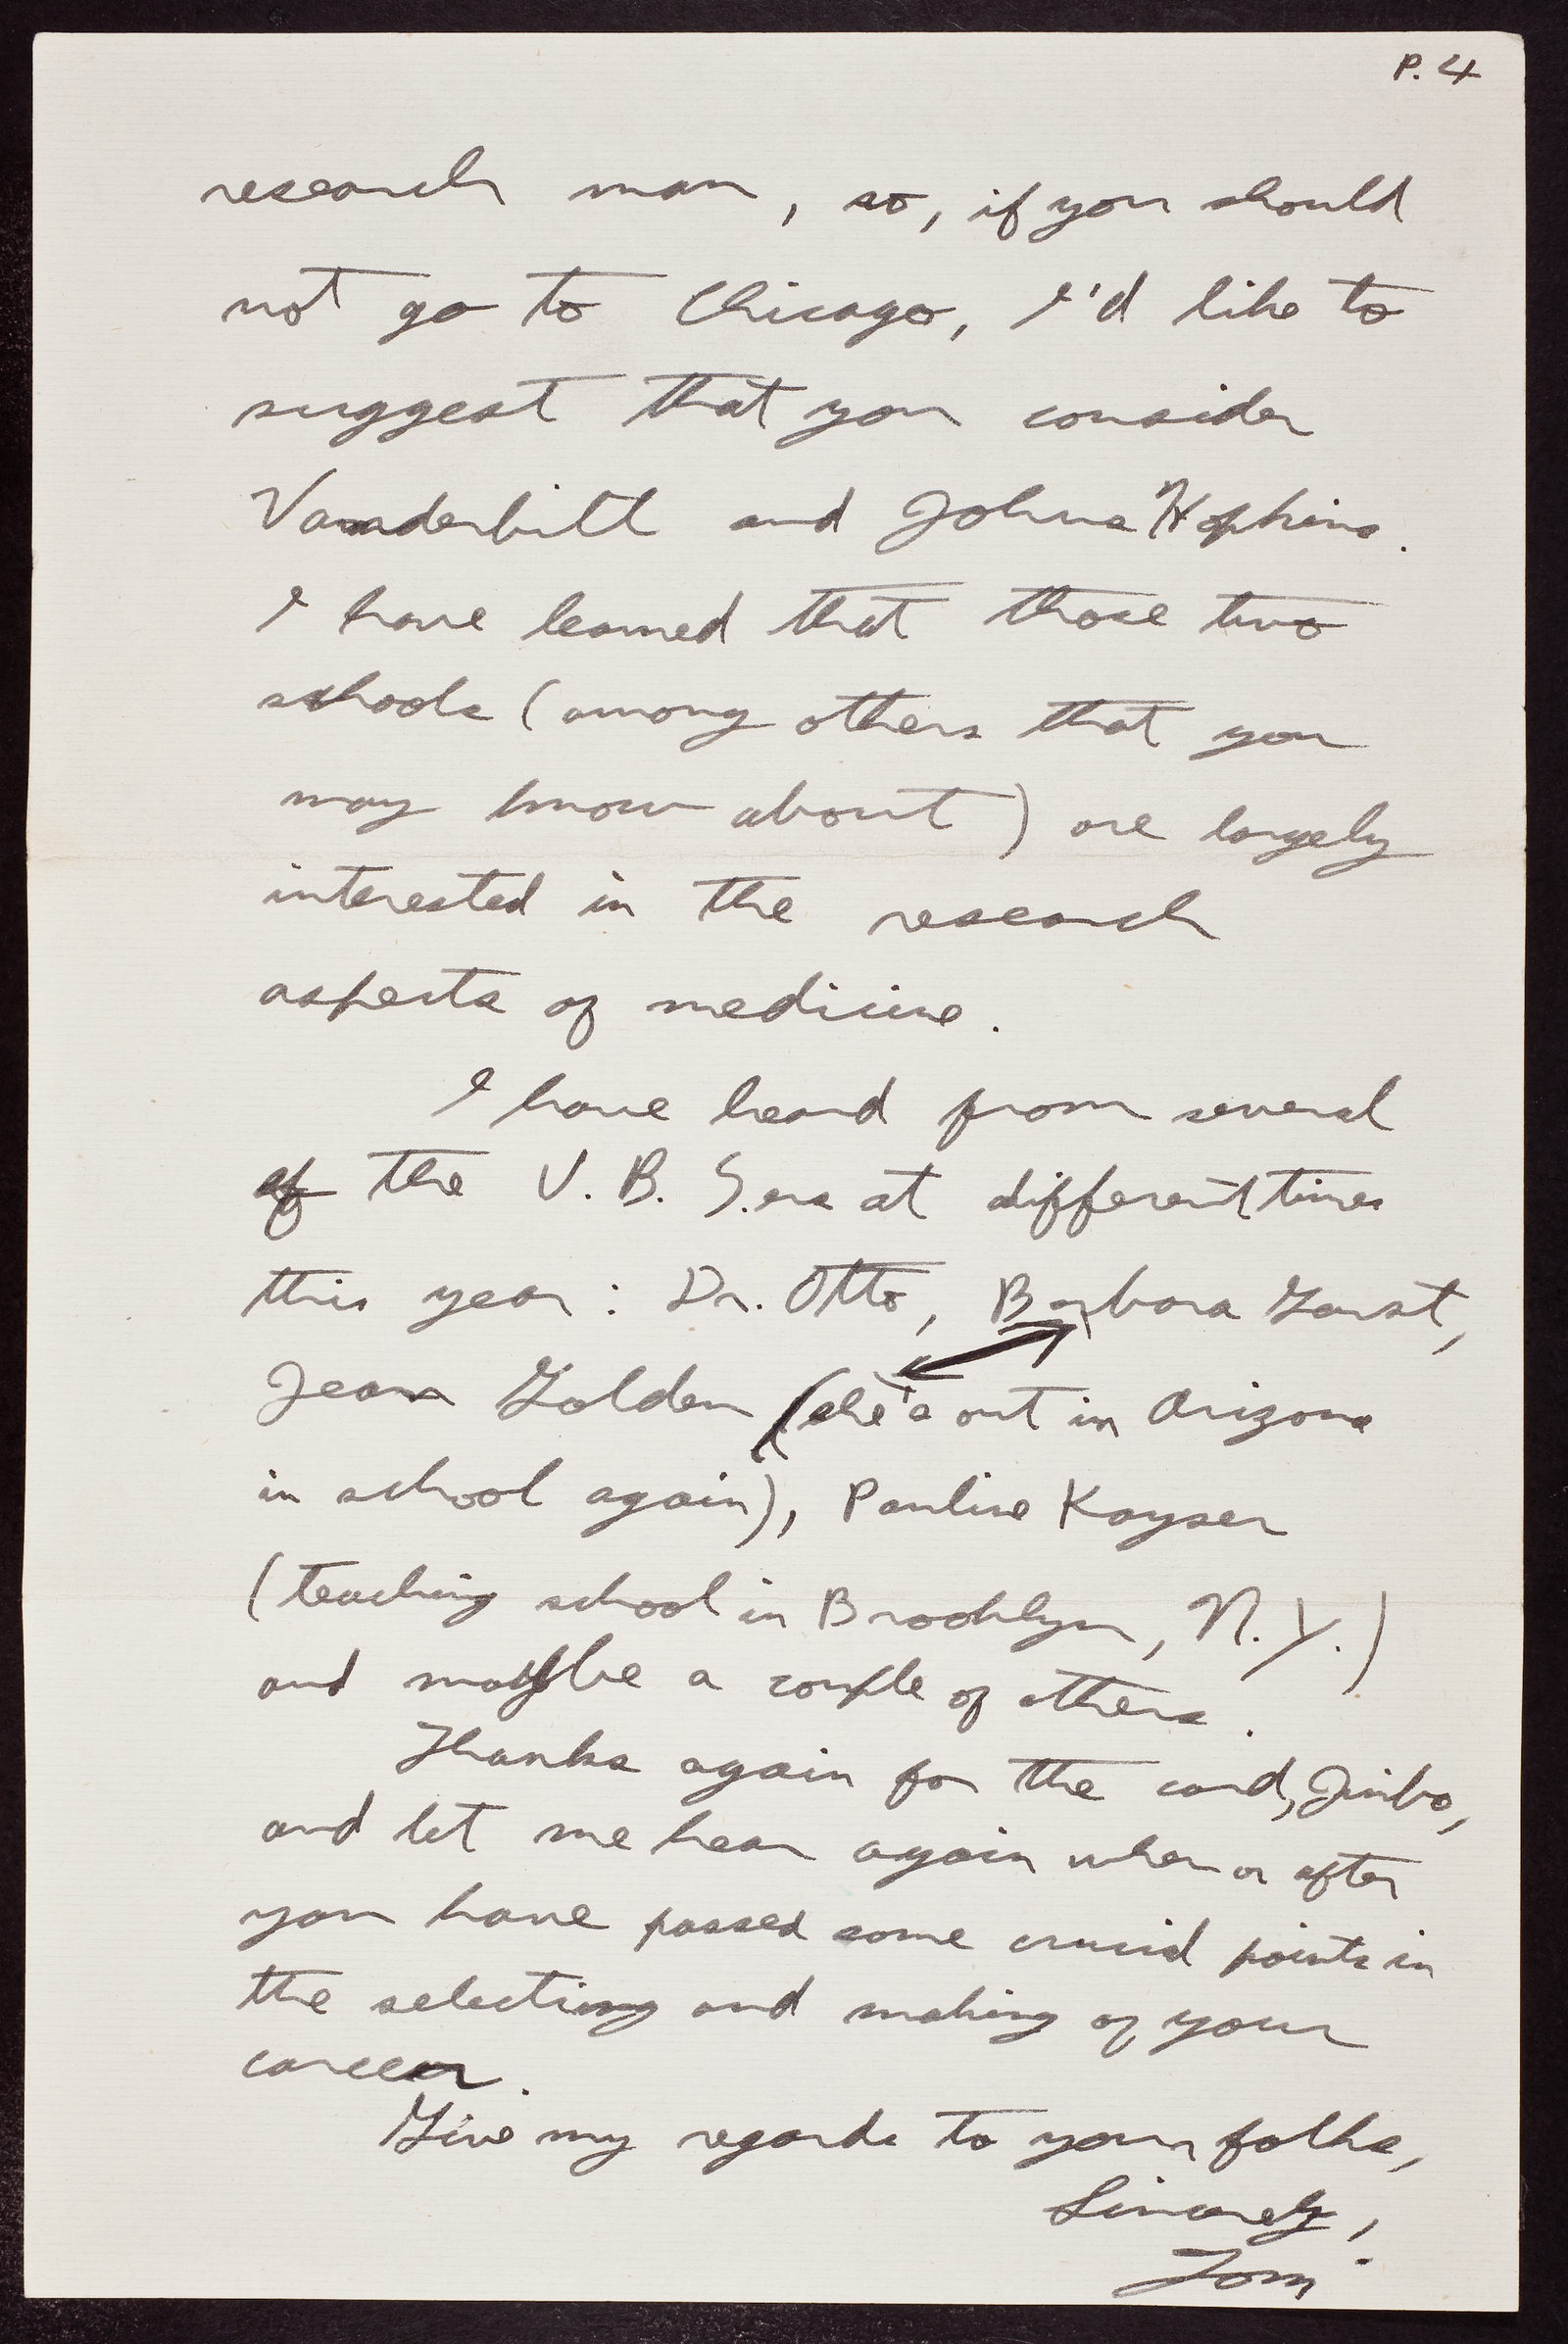 P. 4
research man, so, if you should
not go to Chicago, I'd like to
suggest that you consider
Vanderbilt and Johns Hopkins.
I have learned that those two
schools (among others that you
may know about) are largely
interested in the research
aspects of medicine.
I have heard from several
of the V. B. S.ers at different times
this year: Dr. Otto, Barbara Garst,
Jean Golden (she's out in Arizona
in school again), Pauline Kayser
(teaching school in Brooklyn, N.Y.)
and maybe a couple of others.
Thanks again for the card, Jimbo,
and let me hear again when or after
you have passed some crucial points in
the selecting and making of your
career.
Give my regards to your folks,
Sincerely,
Tom